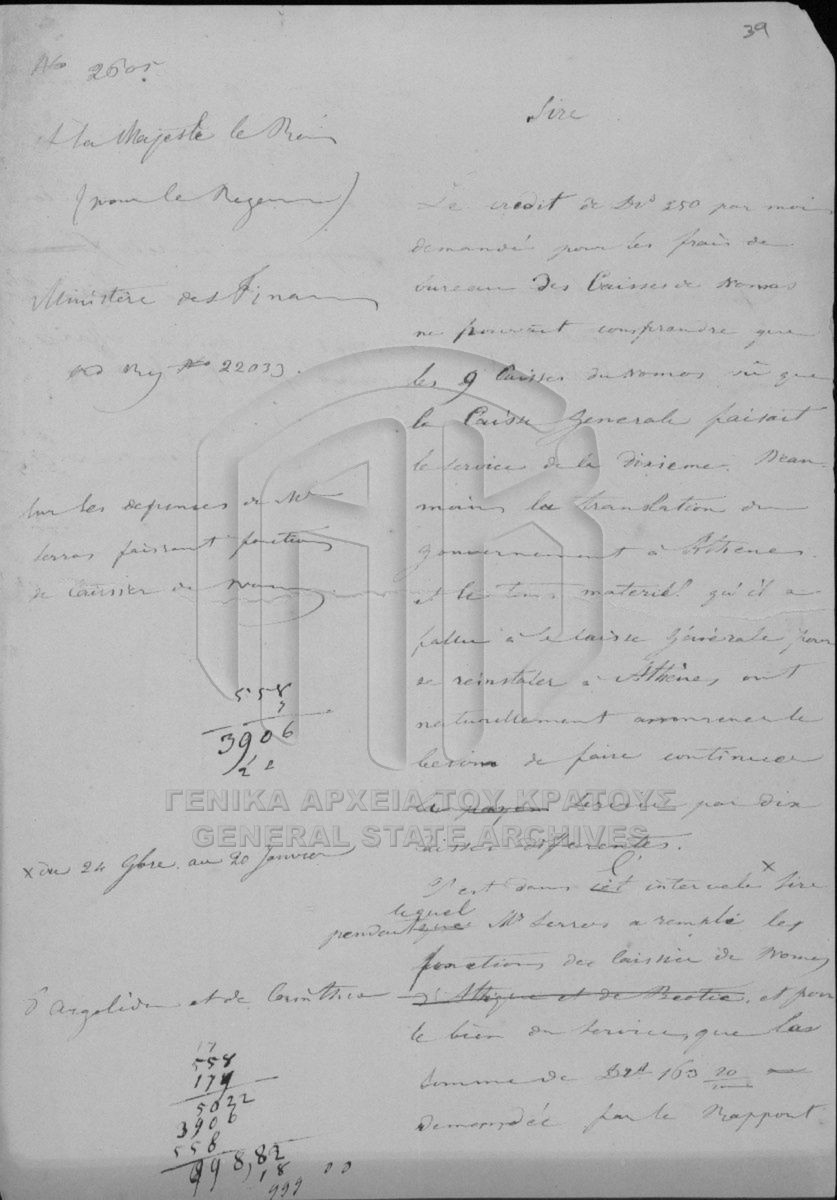 39
No 2605
A Sa Majesté le Roi
(pour le Regence)
Ministère des Finances
ad Reg No 22033.
Sur les depenses de Mr
Serros faissant fonctions
de caissier de Nomos
558
7
3906
22
x du 24 9bre. au 20 Janvier
d'Argolide et de Corinthie
17
558
179
5022
3906
558
998,82
18
999 00
Sire
Le credit de Drs 250 par mois
demandé pour les frais de
bureau des Caisses de Nomos
ne pouvait comprendre que
les 9 Caisses du Nomos vu que
la Caisse Generale faisait
le service de la dixieme. Nean-
moins la translation du
Gouvernement à Athènes.
et le tems materiel qu'il a
fallu à la Caisse Générale pour
se reinstaler à Athènes, ont
naturellement le
besoin de faire continuer
le service par dix
caisses differentes.
C'est dans cet intervale x Sire
pendant lequel Mr Serros a rempli les
fonctions de Caissier de Nomos
d'Attique et de Beotie, et pour
le bien du service, que la
somme de Drs 163 20
demandée par le Rapport
ΓΕΝΙΚΑ ΑΡΧΕΙΑ ΤΟΥ ΚΡΑΤΟΥΣ
GENERAL STATE ARCHIVES